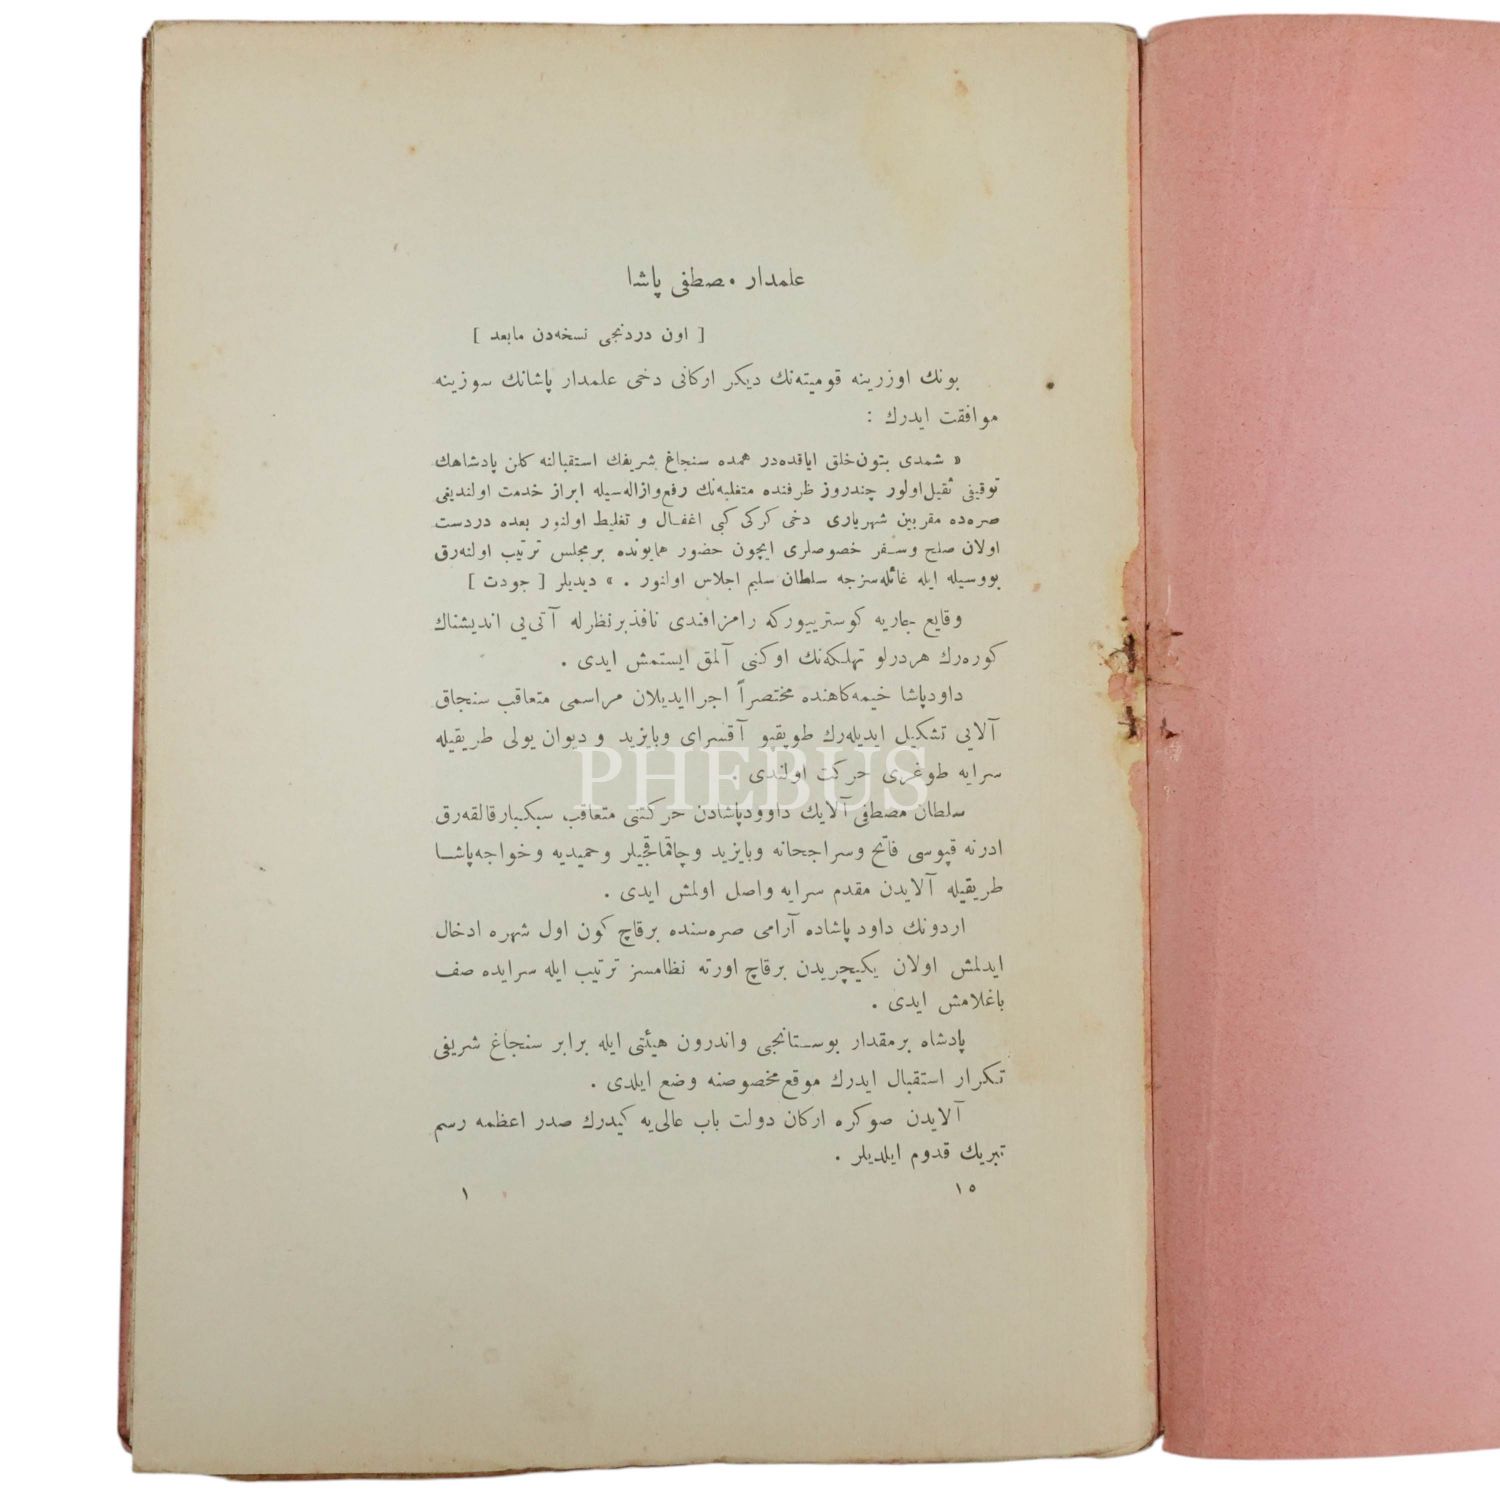 علمدار مصطفی پاشا
[ اون دردنجی نسخه‌دن مابعد ]
بونك اوزرینه قومیته‌نك دیكر اركانی دخی علمدار پاشانك سوزینه
موافقت ایدرك :
« شمدی بتون خلق ایاقده‌در همده سنجاغ شریفك استقبالنه كلن پادشاهك
توقیفی ثقیل اولور چندروز ظرفنده متغلبه‌نك رفع وازاله‌سیله ابراز خدمت اولندیغی
صره‌ده مقربین شهریاری دخی كركی كبی اغفال و تغلیط اولنور بعده دردست
اولان صلح وسفر خصوصلری ایچون حضور همایونده برمجلس ترتیب اولنه‌رق
بووسیله ایله غائله‌سزجه سلطان سلیم اجلاس اولنور . » دیدیلر [ جودت ]
وقایع جاریه كوسترییوركه رامز افندی نافذ برنظرله آتی‌یی اندیشناك
كوره‌رك هردرلو تهلكه‌نك اوكنی آلمق ایستمش ایدی .
داودپاشا خیمه‌كاهنده مختصراً اجرا ایدیلان مراسمی متعاقب سنجاق
آلایی تشكیل ایدیله‌رك طوپقپو آقسرای وبایزید و دیوان یولی طریقیله
سرایه طوغری حركت اولندی .
PHEBUS
سلطان مصطفی آلایك داوودپاشادن حركتنی متعاقب سبكبار قالقه‌رق
ادرنه قپوسی فاتح وسراجخانه وبایزید وچاقماقجیلر وحمیدیه وخواجه‌پاشا
طریقیله آلایدن مقدم سرایه واصل اولمش ایدی .
اردونك داود پاشاده آرامی صره‌سنده برقاچ كون اول شهره ادخال
ایدلمش اولان یكیچریدن برقاچ اورته نظامسز ترتیب ایله سرایده صف
باغلامش ایدی .
پادشاه برمقدار بوستانجی واندرون هیئتی ایله برابر سنجاغ شریفی
تكرار استقبال ایدرك موقع مخصوصنه وضع ایلدی .
آلایدن صوكره اركان دولت باب عالی‌یه كیدرك صدر اعظمه رسم
تبریك قدوم ایلدیلر .
١٥ ١